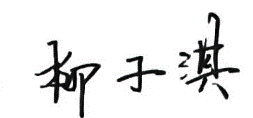 柳子淇